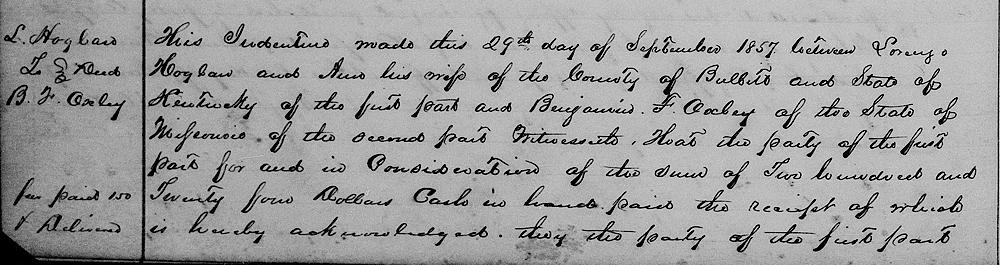 L. Hoglan
To } Deed
B. F. Oxley
fee paid 100
& Delivered
This Indenture made this 29th day of September 1857 between Lorenzo
Hoglan and Ann his wife of the County of Bullitt and State of
Kentucky of the first part and Benjamin. F. Oxley of the State of
Missouri of the second part Witnesseth. that the party of the first
part for and in Consideration of the sum of Two hundred and
Twenty four Dollars Cash in hand paid the receipt of which
is hereby acknowledged. they the party of the first part